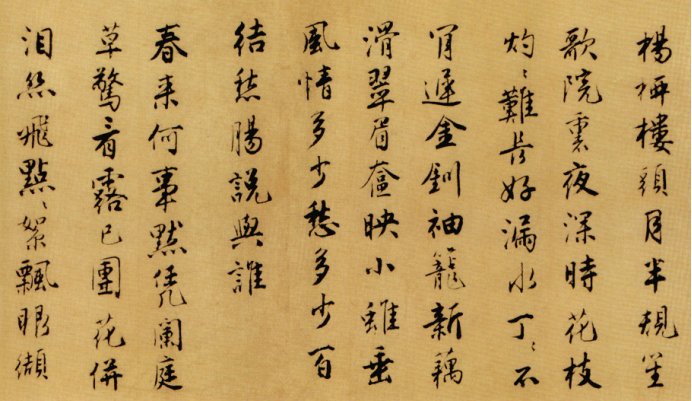 楊柳樓頭月半規笙
歌院裏夜深時花枝
灼〻難長好漏水丁〻不
肯遲金釧袖籠新藕
滑翠眉奩映小垂
風情多少愁多少百
結愁腸說與誰
春来何事默凭闌庭
草驚看露已團花併
泪絲飛點〻絮飄眼纈